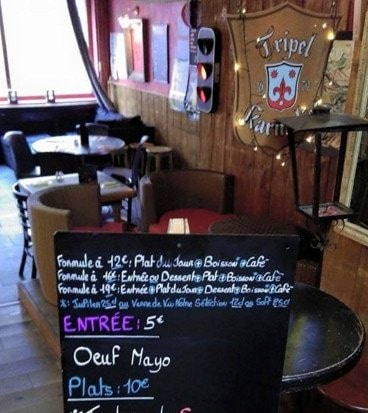 Tripel
Karm
Formule à 12€ : Plat du Jour + Boisson + Café
Formule à 16€ : Entrée ou Dessert + Plat + Boisson + Café
Formule à 19€ : Entrée + Plat du Jour + Dessert + Boisson + Café
* : Jupiler 25cl ou Verre de Vin Notre Sélection 12cl ou Soft 25cl
ENTRÉE : 5€
Oeuf Mayo
Plats : 10€